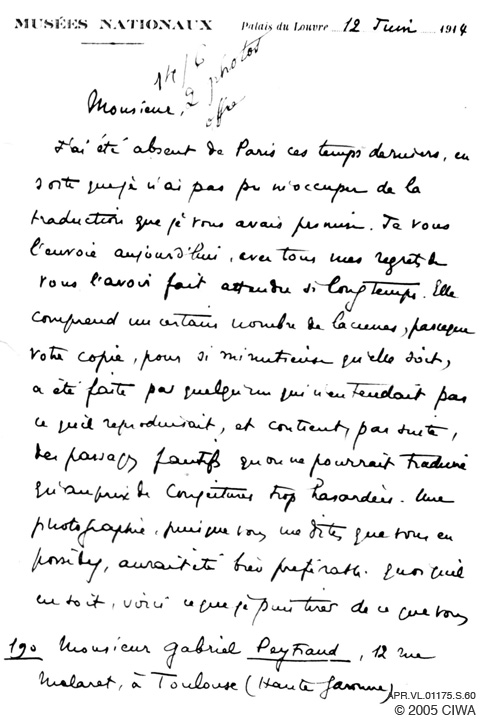 MUSÉES NATIONAUX Palais du Louvre 12 Juin 1914
14/6
2 photos
offre
Monsieur,
J'ai été absent de Paris ces temps derniers, en
sorte que je n'ai pas pu m'occuper de la
traduction que je vous avais promise. Je vous
l'envoie aujourd'hui, avec tous mes regrets de
vous l'avoir fait attendre si longtemps. Elle
comprend un certain nombre de lacunes, parceque
votre copie, pour si minutieuse qu'elle soit,
a été faite par quelqu'un qui n'entendait pas
ce qu'il reproduisait, et contient, par suite,
des passages fautifs qu'on ne pourrait traduire
qu'au prix de conjectures trop hasardées. Une
photographie, puisque vous me dites que vous en
possédez, aurait été bien préférable. Quoiqu'il
en soit, voici ce que je puis tirer de ce que vous
190 Monsieur Gabriel Peyraud, 12 rue
Malaret, à Toulouse (Haute Garonne)
APR.VL.01175.S.60
© 2005 CIWA